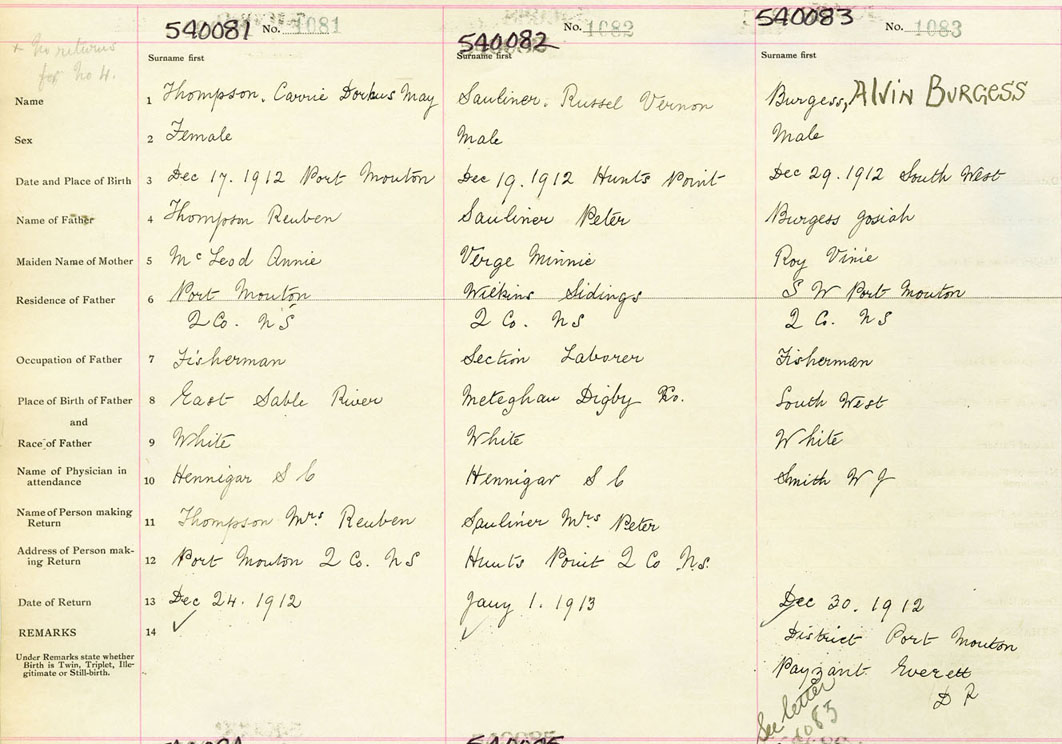 540081 No. 1081
540082 No. 1082
540083 No. 1083
+ No returns
for No 4.
Surname first
Surname first
Name 1 Thompson, Carrie Dorkus May
Sauliner, Russel Vernon
Burgess, ALVIN BURGESS
Sex 2 Female
Male
Male
Date and Place of Birth 3 Dec 17. 1912 Port Mouton
Dec 19. 1912 Hunts Point
Dec 29. 1912 South West
Name of Father 4 Thompson Reuben
Sauliner Peter
Burgess Josiah
Maiden Name of Mother 5 McLeod Annie
Verge Minnie
Roy Vinie
Residence of Father 6 Port Mouton
Wilkins Sidings
S W Port Mouton
Q Co. N S
Q Co. N S
Q Co. N S
Occupation of Father 7 Fisherman
Section Laborer
Fisherman
Place of Birth of Father 8 East Sable River
Meteghan Digby Co.
South West
and
Race of Father 9 White
White
White
Name of Physician in
attendance 10 Hennigar S C
Hennigar S C
Smith W J
Name of Person making
Return 11 Thompson Mrs Reuben
Sauliner Mrs Peter
Address of Person mak-
ing Return 12 Port Mouton Q Co. N S
Hunts Point Q Co N.S.
Date of Return 13 Dec 24. 1912
Jany 1. 1913
Dec 30. 1912
REMARKS 14
District Port Mouton
Under Remarks state whether
Birth is Twin, Triplet, Ille-
gitimate or Still-birth.
Payzant Everett
D R
See letter
1083